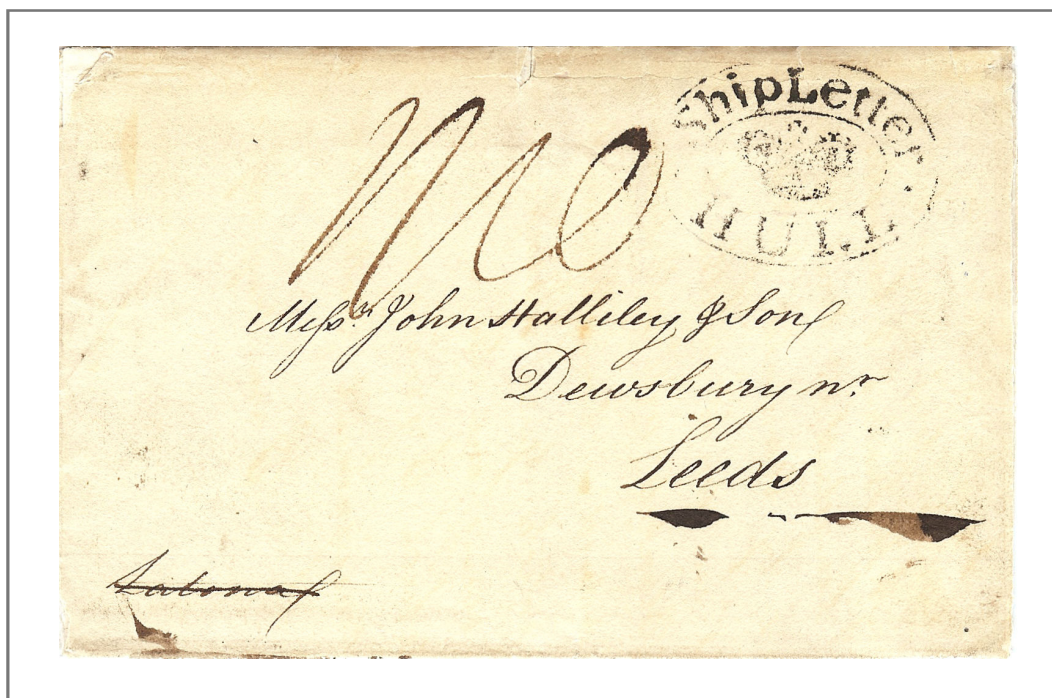 Ship Letter
HULL
Messrs. John Halliley & Sons
Dewsbury nr.
Leeds